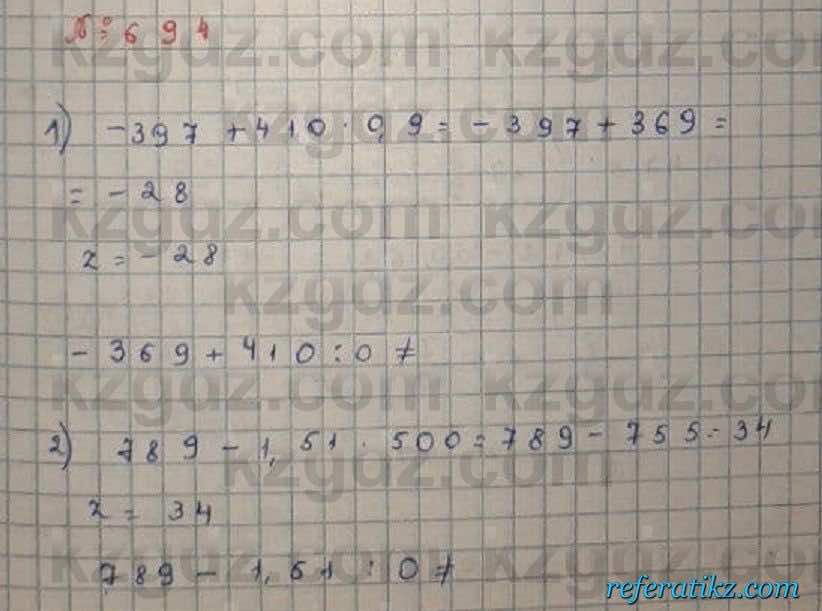 № 694
1) -397 + 410 · 0,9 = -397 + 369 =
= -28
z = -28
-369 + 410 : 0 ≠
2) 789 - 1,51 · 500 = 789 - 755 = 34
z = 34
789 - 1,51 : 0 ≠
kzgdz.com kzgdz.com
kzgdz.com kzgdz.com
kzgdz.com
kzgdz.com kzgdz.com
kzgdz.com
kzgdz.com kzgdz.com
referatikz.com